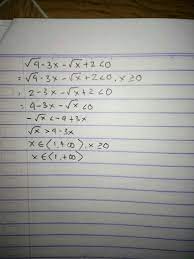 √4-3x-√x+2<0
=√4-3x-√x+2<0, x≥0
2-3x-√x+2<0
=4-3x-√x<0
-√x<-4+3x
√x>4-3x
x∈⟨1,+∞⟩, x≥0
x∈⟨1,+∞⟩